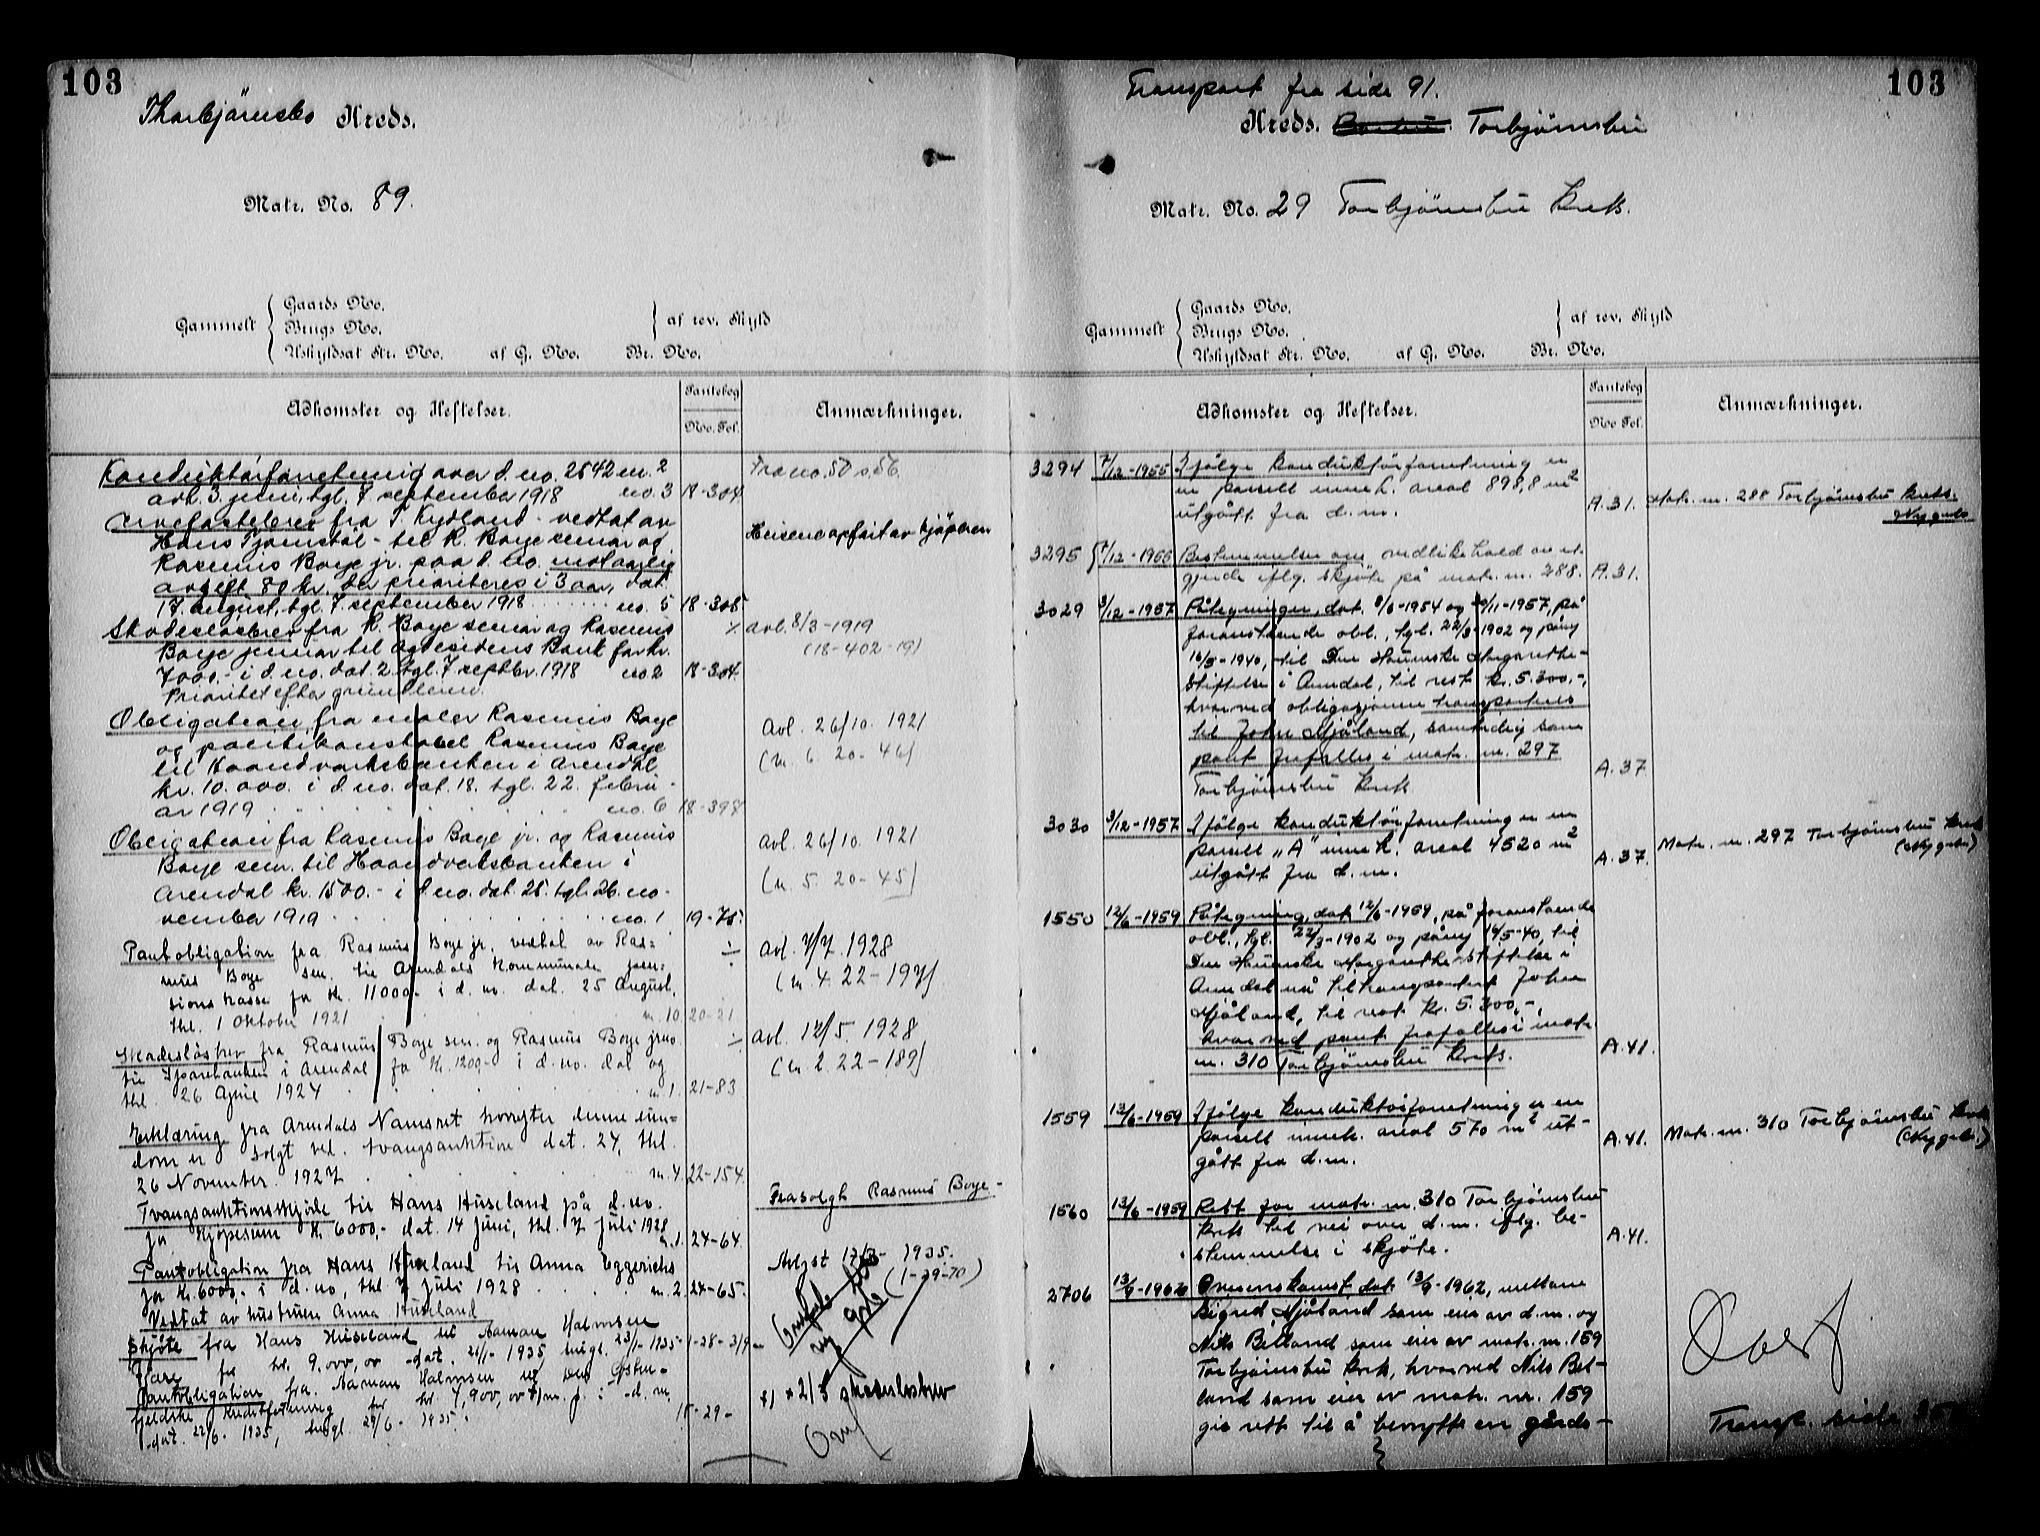 103
Thorbjørnsbo Kreds.
Matr. No. 89.
Gammelt
Gaards No.
Brugs No.
Uskyldsat Str. No. af G. No. Br. No.
af rev. Skyld
Adkomster og Heftelser.
Pantebog
No. Fol.
Anmærkninger.
Konduktørforretning over d. no. 2542 m. 2
avh. 3. juni, tgl. 7 september 1918 no. 3 18-304
Fra no. 50 s. 56
fra T. Kydland - vedtat av
Hans Tjomstøl - til R. Boye senior og
Rasmus Boye jr. paa d. no. mot aarlig
avgift 80 kr. der prioriteres i 3 aar, dat.
17. august, tgl. 7. september 1918 no. 5 18-305
Skadesløsbrev fra R. Boye senior og Rasmus
Boye junior til Agdesidens Bank for kr.
7000.- i d. no. dat. 2. tgl. 7 septbr. 1918 no 2 18-304
Prioritet efter grundleien.
avl. 8/3-1919
(18-402-19)
Obligation fra maler Rasmus Boye
og politikonstabel Rasmus Boye
til Haandverksbanken i Arendal
kr. 10.000. i d. no. dat. 18. tgl. 22. febru-
ar 1919 no. 6 18-397
Avl. 26/10. 1921
(n. 6 20-46)
Obligation fra Rasmus Boye jr. og Rasmus
Boye senr. til Haandverksbanken i
Arendal kr. 1500.- i d. no. dat. 25. tgl. 26. no-
vember 1919 no. 1 19-75
Avl. 26/10 1921
(n. 5. 20-45)
Pantobligation fra Rasmus Boye jr., vedtat av Ras-
mus Boye sen. til Arendals Kommunale pen-
sionskasse for kr. 11000.- i d. no. dat. 25 August,
thl. 1 Oktober 1921 n. 10 20-21
Avl. 7/7. 1928
(n. 4. 22-197)
Skadesløsbrev fra Rasmus Boye sen. og Rasmus Boye jun.
til Sparebanken i Arendal for kr. 1200.- i d. no. dat og
thl. 26 April 1924 n. 1. 21-83
Avl. 12/5. 1928
(n. 2. 22-189)
Erklæring fra Arendals Namsret hvorefter denne eien-
dom er solgt ved tvangsauktion dat. 24, thl.
26 November 1927 n. 4. 22-154
Tvangsauktionsskjøte til Hans Huseland på d. no.
for kjøpesum kr. 6000.- dat. 14 juni, thl. 7 juli 1928 n. 1. 24-64
Frasolgt Rasmus Boye -
Pantobligation fra Hans Huseland til Anna Eggerichs
for kr. 6000.- i d. no, thl. 7 juli 1928 n. 2. 24-65.
Vedtat av hustruen Anna Huseland
Avlyst 1935.
(1-29-70)
Skjøte fra Hans Huseland til Aaman Halmsen
for kr. 9.000,00 dat. 21/1-1935, tingl. 23/1-1935 1-28-319
Pantobligation fra Aaman Halmsen til Den
Kreditforening for kr. 4,900,00 i d. m.
dat. 22/6-1935, tingl. 29/6-1935. 15-29-
skadesløsbrev
103
Transport fra side 91.
Kreds. Torbjørnsbu
Matr. No. 29 Torbjørnsbu krets.
Gammelt
Gaards No.
Brugs No.
Uskyldsat Str. No. af G. No. Br. No.
af rev. Skyld
Adkomster og Heftelser.
Pantebog
No Fol.
Anmærkninger.
3294 7/12-1955 Ifølge konduktørforretning er
en parsell inneh. areal 898,8 m2
utgått fra d. m. A. 31. Matr. nr. 288 Torbjørnsbu krets.
Nygårds
3295 7/12-1955 Bestemmelse om vedlikehold av ut-
gjerde iflg. skjøte på matr. nr. 288. A. 31.
3029 3/12-1957 Påtegninger, dat. 8/6-1954 og /11-1957, på
foranstående obl., tgl. 22/3-1902 og påny
16/5-1940, til Den Houmske Margarethe-
Stiftelse i Arendal, til rest kr. 5.300,-,
hvorved obligasjonen transporteres
til John Mjåland, samtidig som
pant frafalles i matr. nr. 297
Torbjørnsbu krets. A. 37
3030 3/12-1957 Ifølge konduktørforretning er en
parsell „A" inneh. areal 4520 m2
utgått fra d. m. A. 37. Matr. nr. 297 Torbjørnsbu krets
1550 12/6-1959 Påtegning, dat. 12/6-1959, på foranstående
obl., tgl. 22/3-1902 og påny 16/5-40, til
Den Houmske Margarethe Stiftelse i
Arendal nå til transportert John
Mjåland, til rest kr. 5.300,-,
hvorved pant frafalles i matr.
nr. 310 Torbjørnsbu krets. A. 41.
1559 13/6-1959 Ifølge konduktørforretning er en
parsell inneh. areal 570 m2 ut-
gått fra d. m. A. 41. Matr. nr. 310 Torbjørnsbu krets
1560 13/6-1959 Rett for matr. nr. 310 Torbjørnsbu
krets til vei over d. m. iflg. be-
stemmelse i skjøte. A. 41.
2706 13/9-1962 Overenskomst, dat. 13/9-1962, mellom
Sigrid Mjåland som eier av d. m. og
Nils Beiland som eier av matr. nr. 159
Torbjørnsbu krets, hvorved Nils Bei-
land som eier av matr. nr. 159
gis rett til å benytte en gårds-
Overf
Transp. side